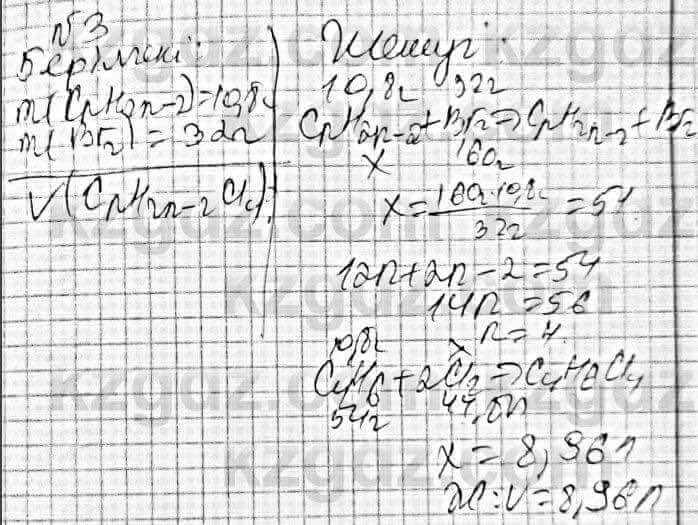 №3
Берілгені:
m(CnH2n-2)=10,8г
m(Br2)=32г
V(CnH2n-2Cl4):
Шешуі:
10,8г 32г
CnH2n-2+Br2=>CnH2n-2+Br2
x 160г
x=160·10,8г/32г=54
12n+2n-2=54
14n=56
n=4.
10,8г x
C4H6+2Cl2=>C4H6Cl4
54г 44,8л
x=8,96л
Ж:V=8,96л